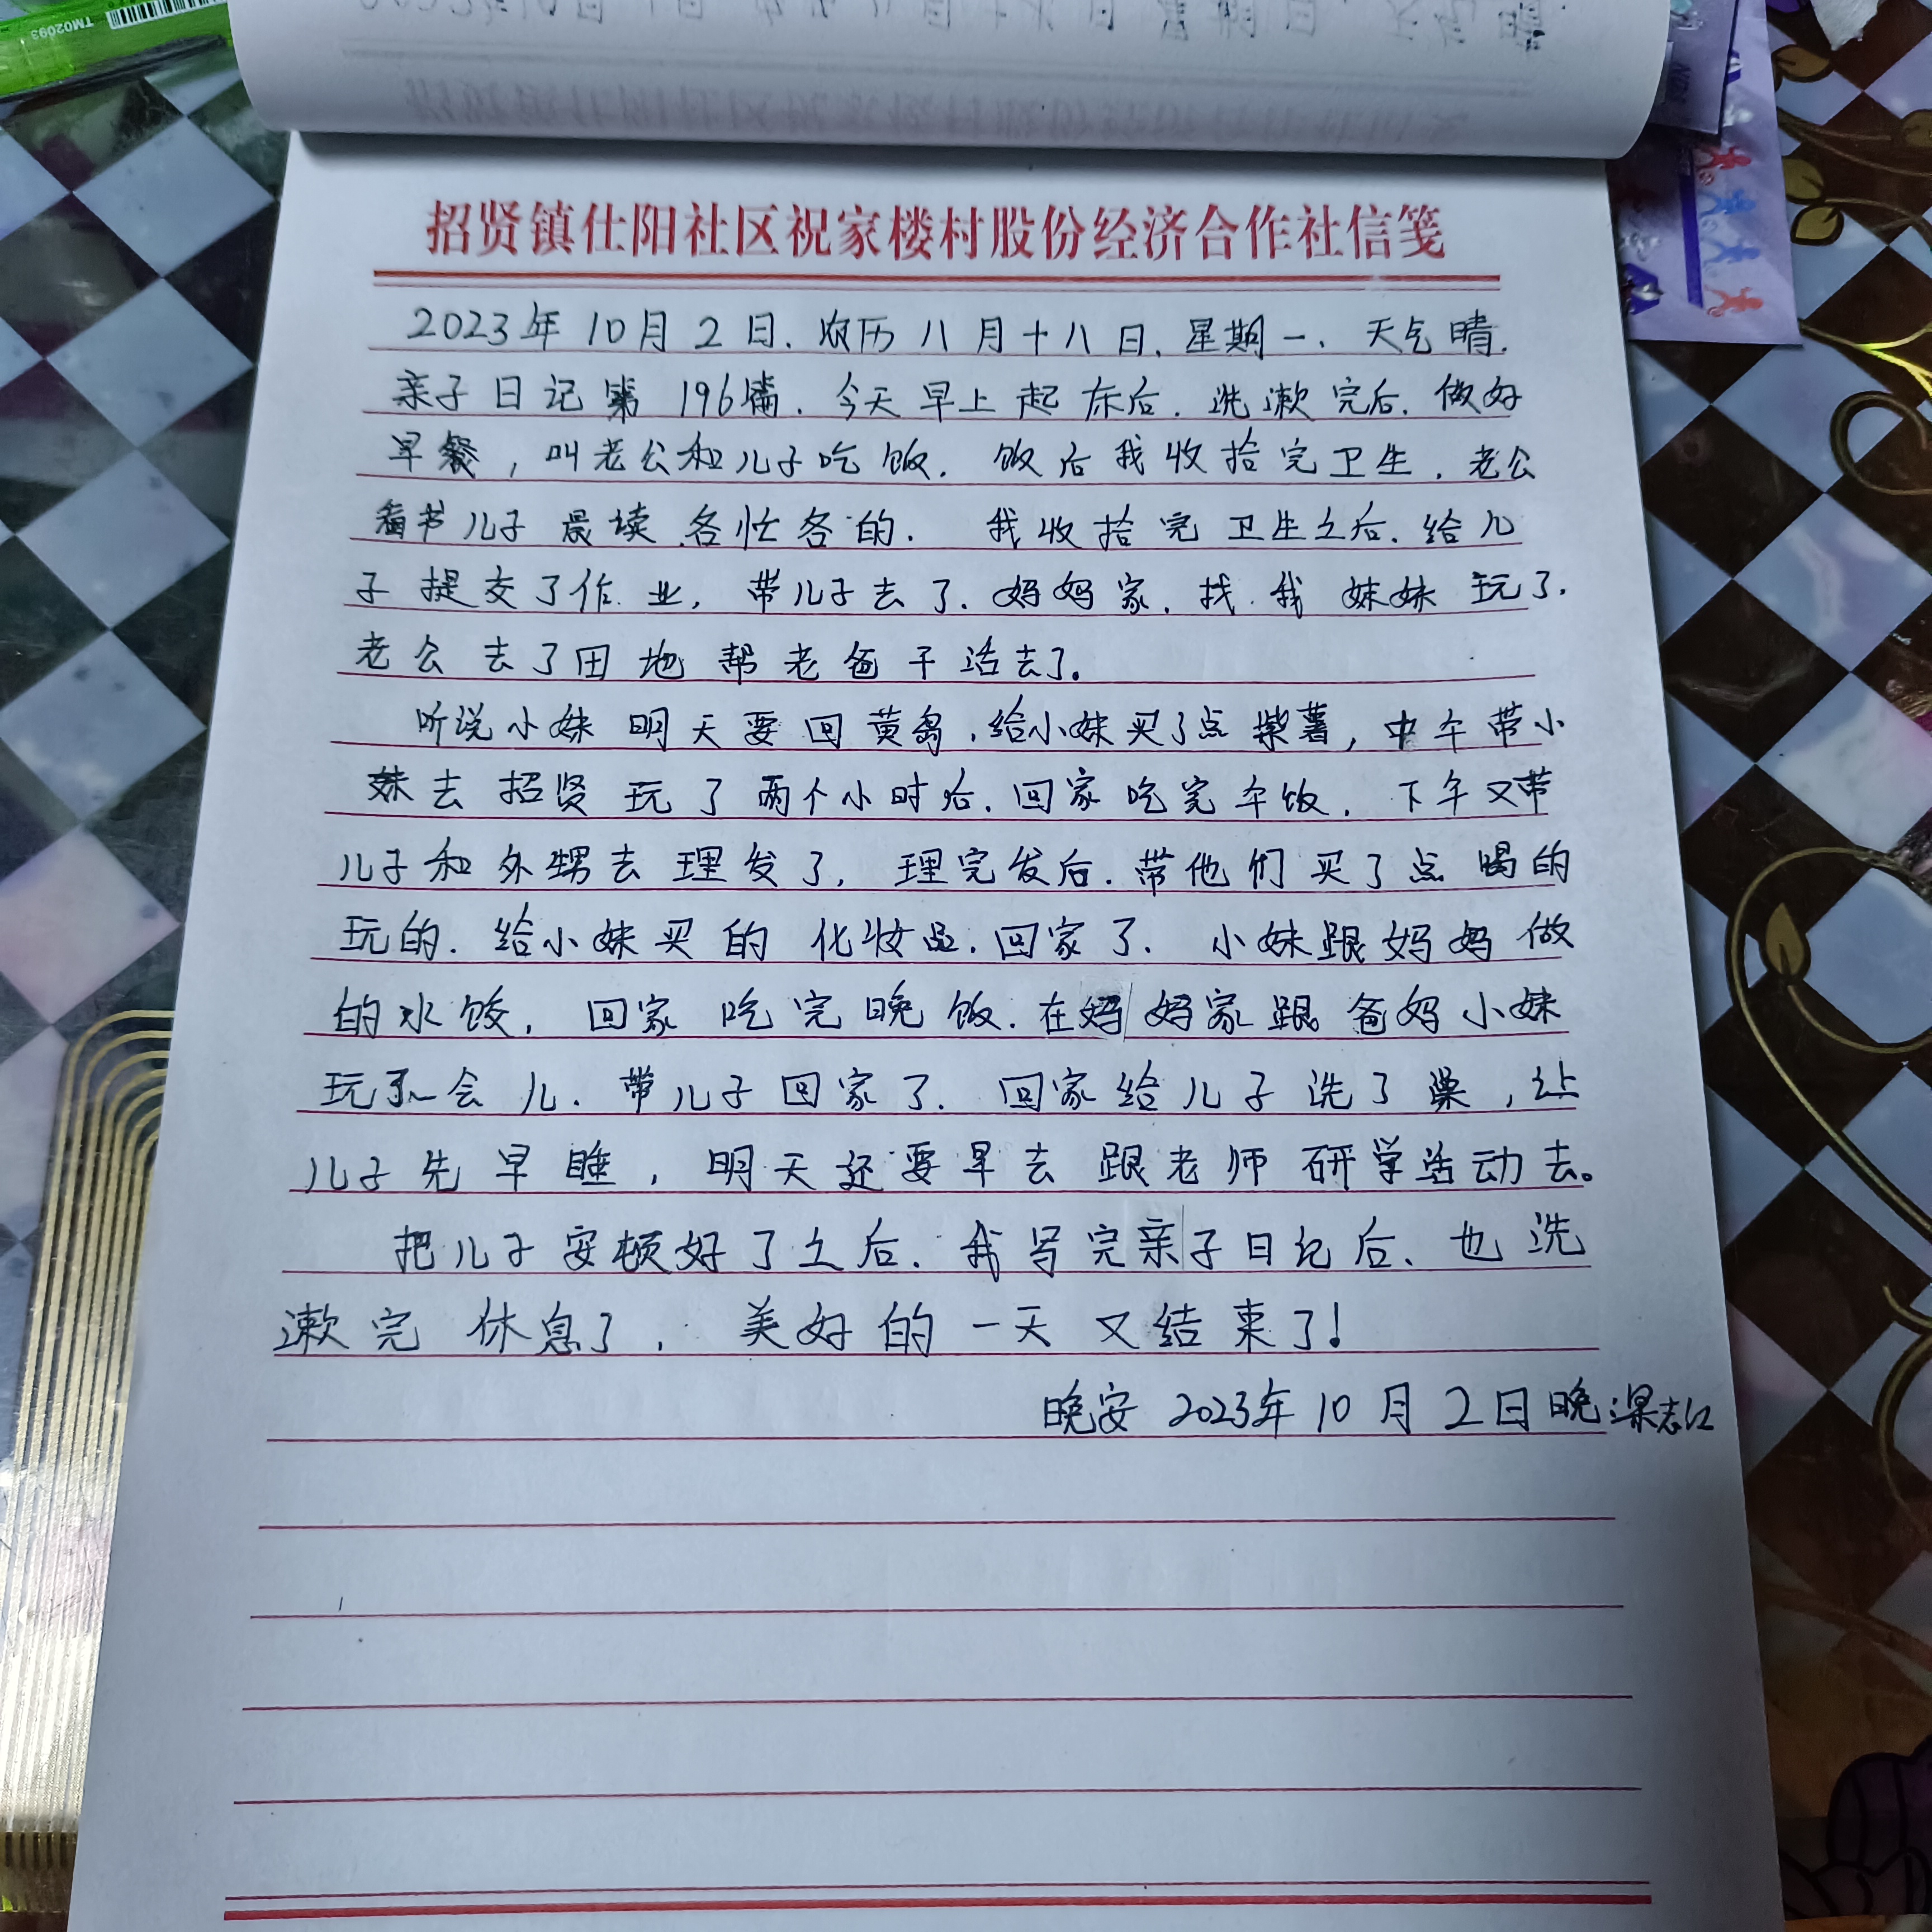 TM02093
招贤镇仕阳社区祝家楼村股份经济合作社信笺
2023年10月2日.农历八月十八日.星期一、天气晴.
亲子日记第196篇.今天早上起床后.洗漱完后.做好
早餐,叫老公和儿子吃饭.饭后我收拾完卫生.老公
看书儿子晨读.各忙各的.我收拾完卫生之后.给儿
子提交了作业,带儿子去了.妈妈家.找我妹妹玩了.
老公去了田地帮老爸干活去了。
听说小妹明天要回黄岛.给小妹买了点紫薯,中午带小
妹去招贤玩了两个小时后.回家吃完午饭.下午又带
儿子和外甥去理发了,理完发后.带他们买了点喝的
玩的.给小妹买的化妆品.回家了.小妹跟妈妈做
的水饺,回家吃完晚饭.在妈妈家跟爸妈小妹
玩了一会儿.带儿子回家了.回家给儿子洗了澡,让
儿子先早睡,明天还要早去跟老师研学活动去。
把儿子安顿好了之后.我写完亲子日记后、也洗
漱完休息了,美好的一天又结束了!
晚安2023年10月2日晚梁志江